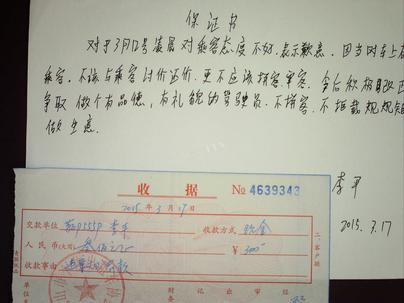 保证书
对于3月17号凌晨对乘客态度不好,表示歉意。因当时车上有
乘客,不该与乘客讨价还价,更不应该拼客宰客。今后积极改正
争取做个有品德,有礼貌的驾驶员。不拼客,不拒载规规矩矩
做生意。
李平
2015.3.17
收据 № 4639343
2015年3月17日
交款单位 李平 收款方式 现金
人民币(大写) 叁佰元正 ¥300
收款事由